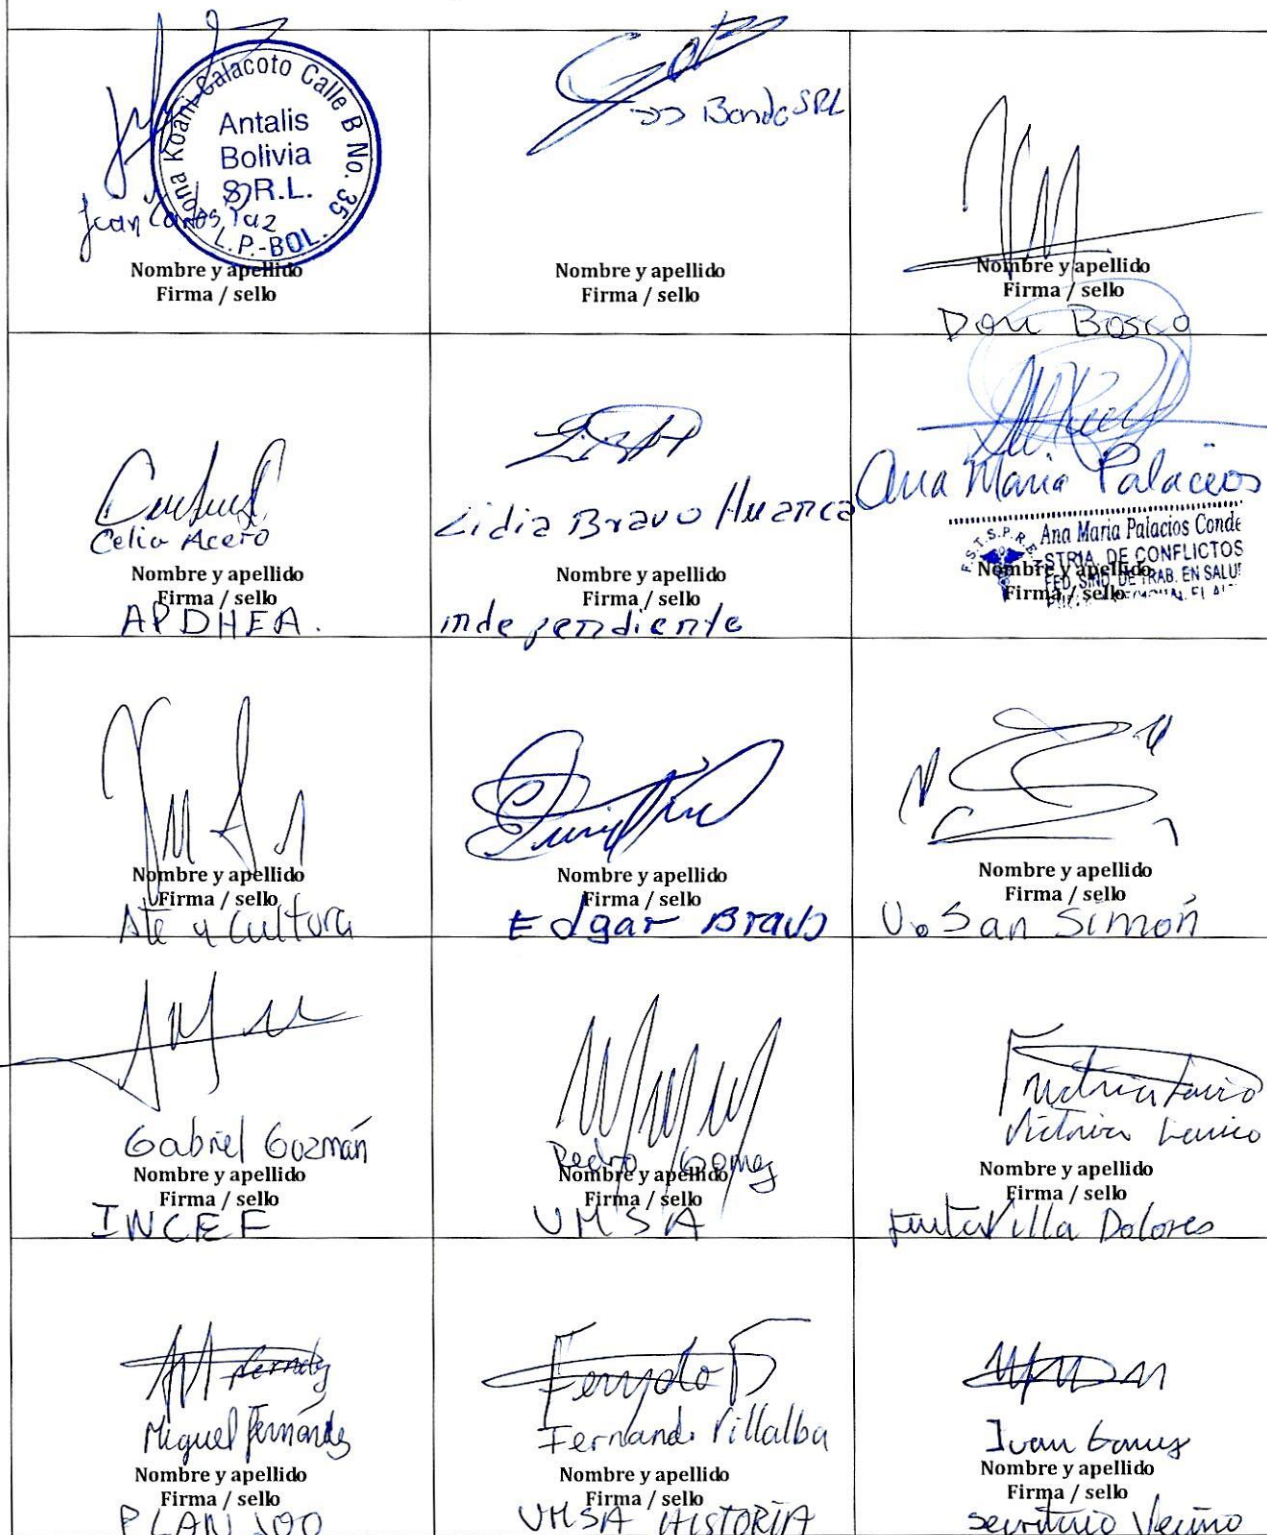 Zona Koani Calacoto Calle B No. 35
Antalis
Bolivia
S.R.L.
L.P.-BOL.
Juan Carlos Paz
Nombre y apellido
Firma / sello
Banda SRL
Nombre y apellido
Firma / sello
Nombre y apellido
Firma / sello
Don Bosco
Celia Acero
Nombre y apellido
Firma / sello
APDHEA.
Lidia Bravo Huanca
Nombre y apellido
Firma / sello
independiente
Ana Maria Palacios
F.S.T.S.P.R.E.
Ana Maria Palacios Conde
STRIA. DE CONFLICTOS
FED. SIND. DE TRAB. EN SALUD
Nombre y apellido
Firma / sello
Nombre y apellido
Firma / sello
Ate y Cultura
Nombre y apellido
Firma / sello
Edgar Bravo
Nombre y apellido
Firma / sello
U. San Simón
Gabriel Guzmán
Nombre y apellido
Firma / sello
INCEF
Pedro Gomez
Nombre y apellido
Firma / sello
UMSA
Victoria
Nombre y apellido
Firma / sello
Villa Dolores
Miguel Fernández
Nombre y apellido
Firma / sello
PLAN
Fernando Villalba
Nombre y apellido
Firma / sello
UMSA HISTORIA
Ivan
Nombre y apellido
Firma / sello